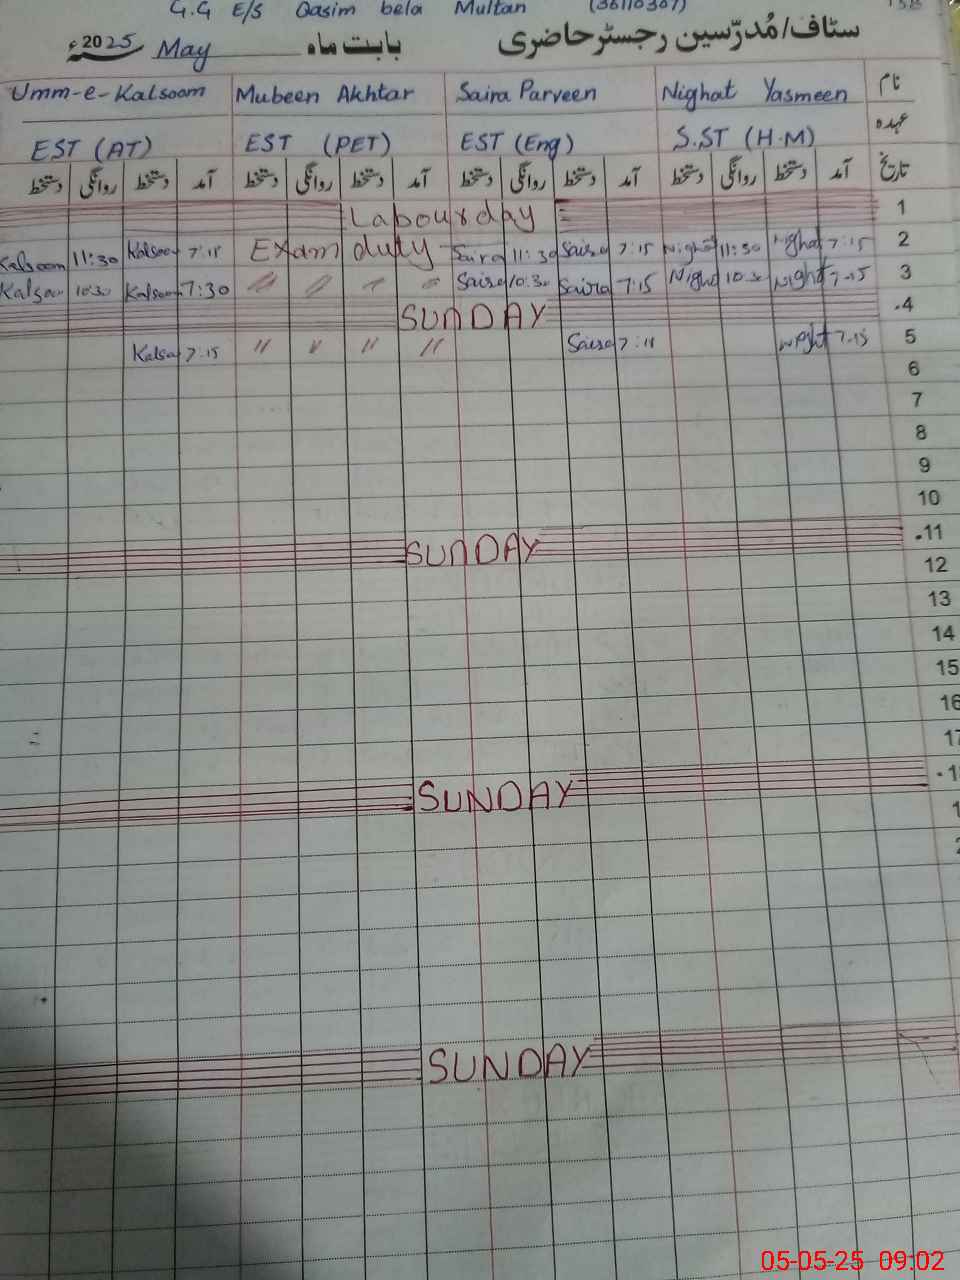 G.G E/S Qasim bela Multan (36110307)
سٹاف/مُدرّسین رجسٹر حاضری بابت ماہ May 2025ء
نام Nighat Yasmeen Saira Parveen Mubeen Akhtar Umm-e-Kalsoom
عہدہ S.ST (H.M) EST (Eng) EST (PET) EST (AT)
تاریخ آمد دستخط روانگی دستخط آمد دستخط روانگی دستخط آمد دستخط روانگی دستخط آمد دستخط روانگی دستخط
1 Labour day
2 7:15 Nighat 11:30 Nighat 7:15 Saira 11:30 Saira Exam duty 7:15 Kalsoom 11:30 Kalsoom
3 7:15 Night 10:30 Night 7:15 Saira 10:30 Saira 〃 〃 〃 〃 7:30 Kalsoom 10:30 Kalsoom
4 SUNDAY
5 7:15 7:15 Saira 〃 〃 〃 〃 7:15 Kalso
6
7
8
9
10
11 SUNDAY
12
13
14
15
16
17
SUNDAY
SUNDAY
05-05-25 09:02